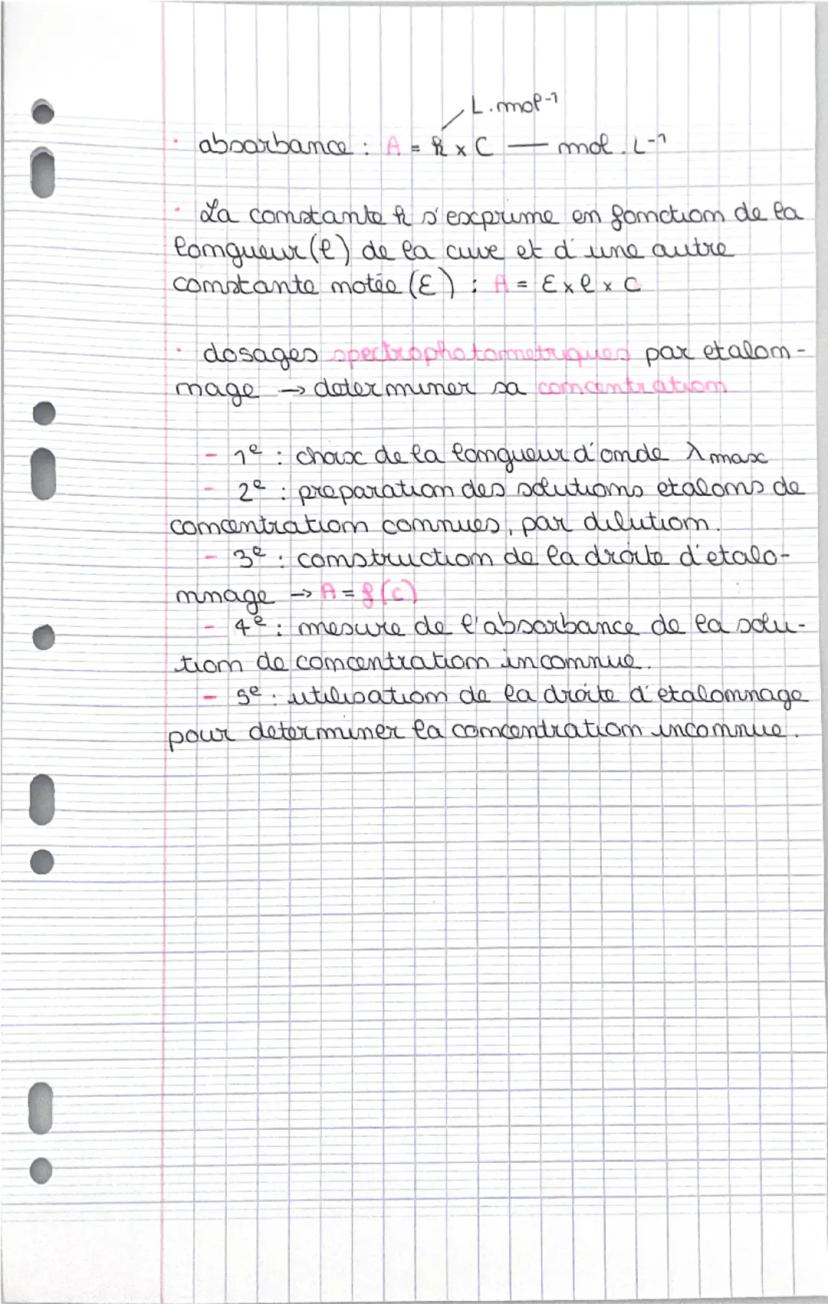 L.mol⁻¹
· absorbance : A = k x C — mol.L⁻¹
· La constante k s'exprime en fonction de la
longueur (l) de la cuve et d'une autre
constante notée (ε) : A = ε x l x C
· dosages spectrophotometriques par etalon-
nage → daterminer sa concentration
- 1e : choix de la longueur d'onde λ max
- 2e : preparation des solutions etalons de
concentration connues, par dilution.
- 3e : construction de la droite d'etalo-
nnage → A = f(c)
- 4e : mesure de l'absorbance de la solu-
tion de concentration inconnue.
- 5e : utilisation de la droite d'etalonnage
pour determiner la concentration inconnue.